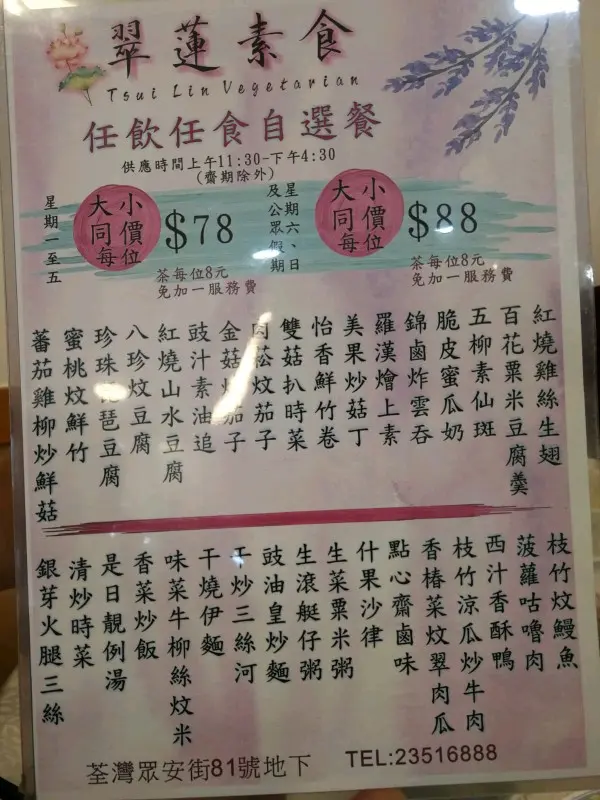 翠蓮素食
Tsui Lin Vegetarian
任飲任食自選餐
供應時間上午11:30-下午4:30
(齋期除外)
星期一至五
大小同價每位
$78
茶每位8元
免加一服務費
星期六、日及公眾假期
大小同價每位
$88
茶每位8元
免加一服務費
紅燒雞絲生翅
百花粟米豆腐羹
五柳素仙斑
脆皮蜜瓜奶
錦鹵炸雲吞
羅漢燴上素
美果炒菇丁
怡香鮮竹卷
雙菇扒時菜
肉菘炆茄子
金菇炒茄子
豉汁素油追
紅燒山水豆腐
八珍炆豆腐
珍珠琵琶豆腐
蜜桃炆鮮竹
蕃茄雞柳炒鮮菇
枝竹炆鰻魚
菠蘿咕嚕肉
西汁香酥鴨
枝竹涼瓜炒牛肉
香椿菜炆翠肉瓜
點心齋鹵味
什果沙律
生菜粟米粥
生滾艇仔粥
豉油皇炒麵
干炒三絲河
干燒伊麵
味菜牛柳絲炆米
香菜炒飯
是日靚例湯
清炒時菜
銀芽火腿三絲
荃灣眾安街81號地下 TEL:23516888